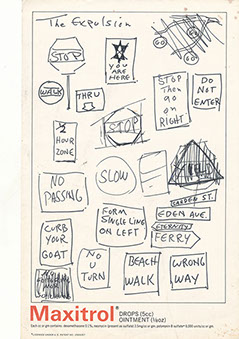 The Expulsion
STOP
YOU
ARE
HERE
GO
GO
WALK
THRU
STOP
Then
go
on
RIGHT
DO
NOT
ENTER
2
HOUR
ZONE
STOP
NO
PASSING
SLOW
EDEN AVE.
ETERNITY
FERRY
CURB
YOUR
GOAT
FORM
SINGLE LINE
ON LEFT
NO
U
TURN
BEACH
WALK
WRONG
WAY
Maxitrol® DROPS (5cc)
OINTMENT (⅛oz)